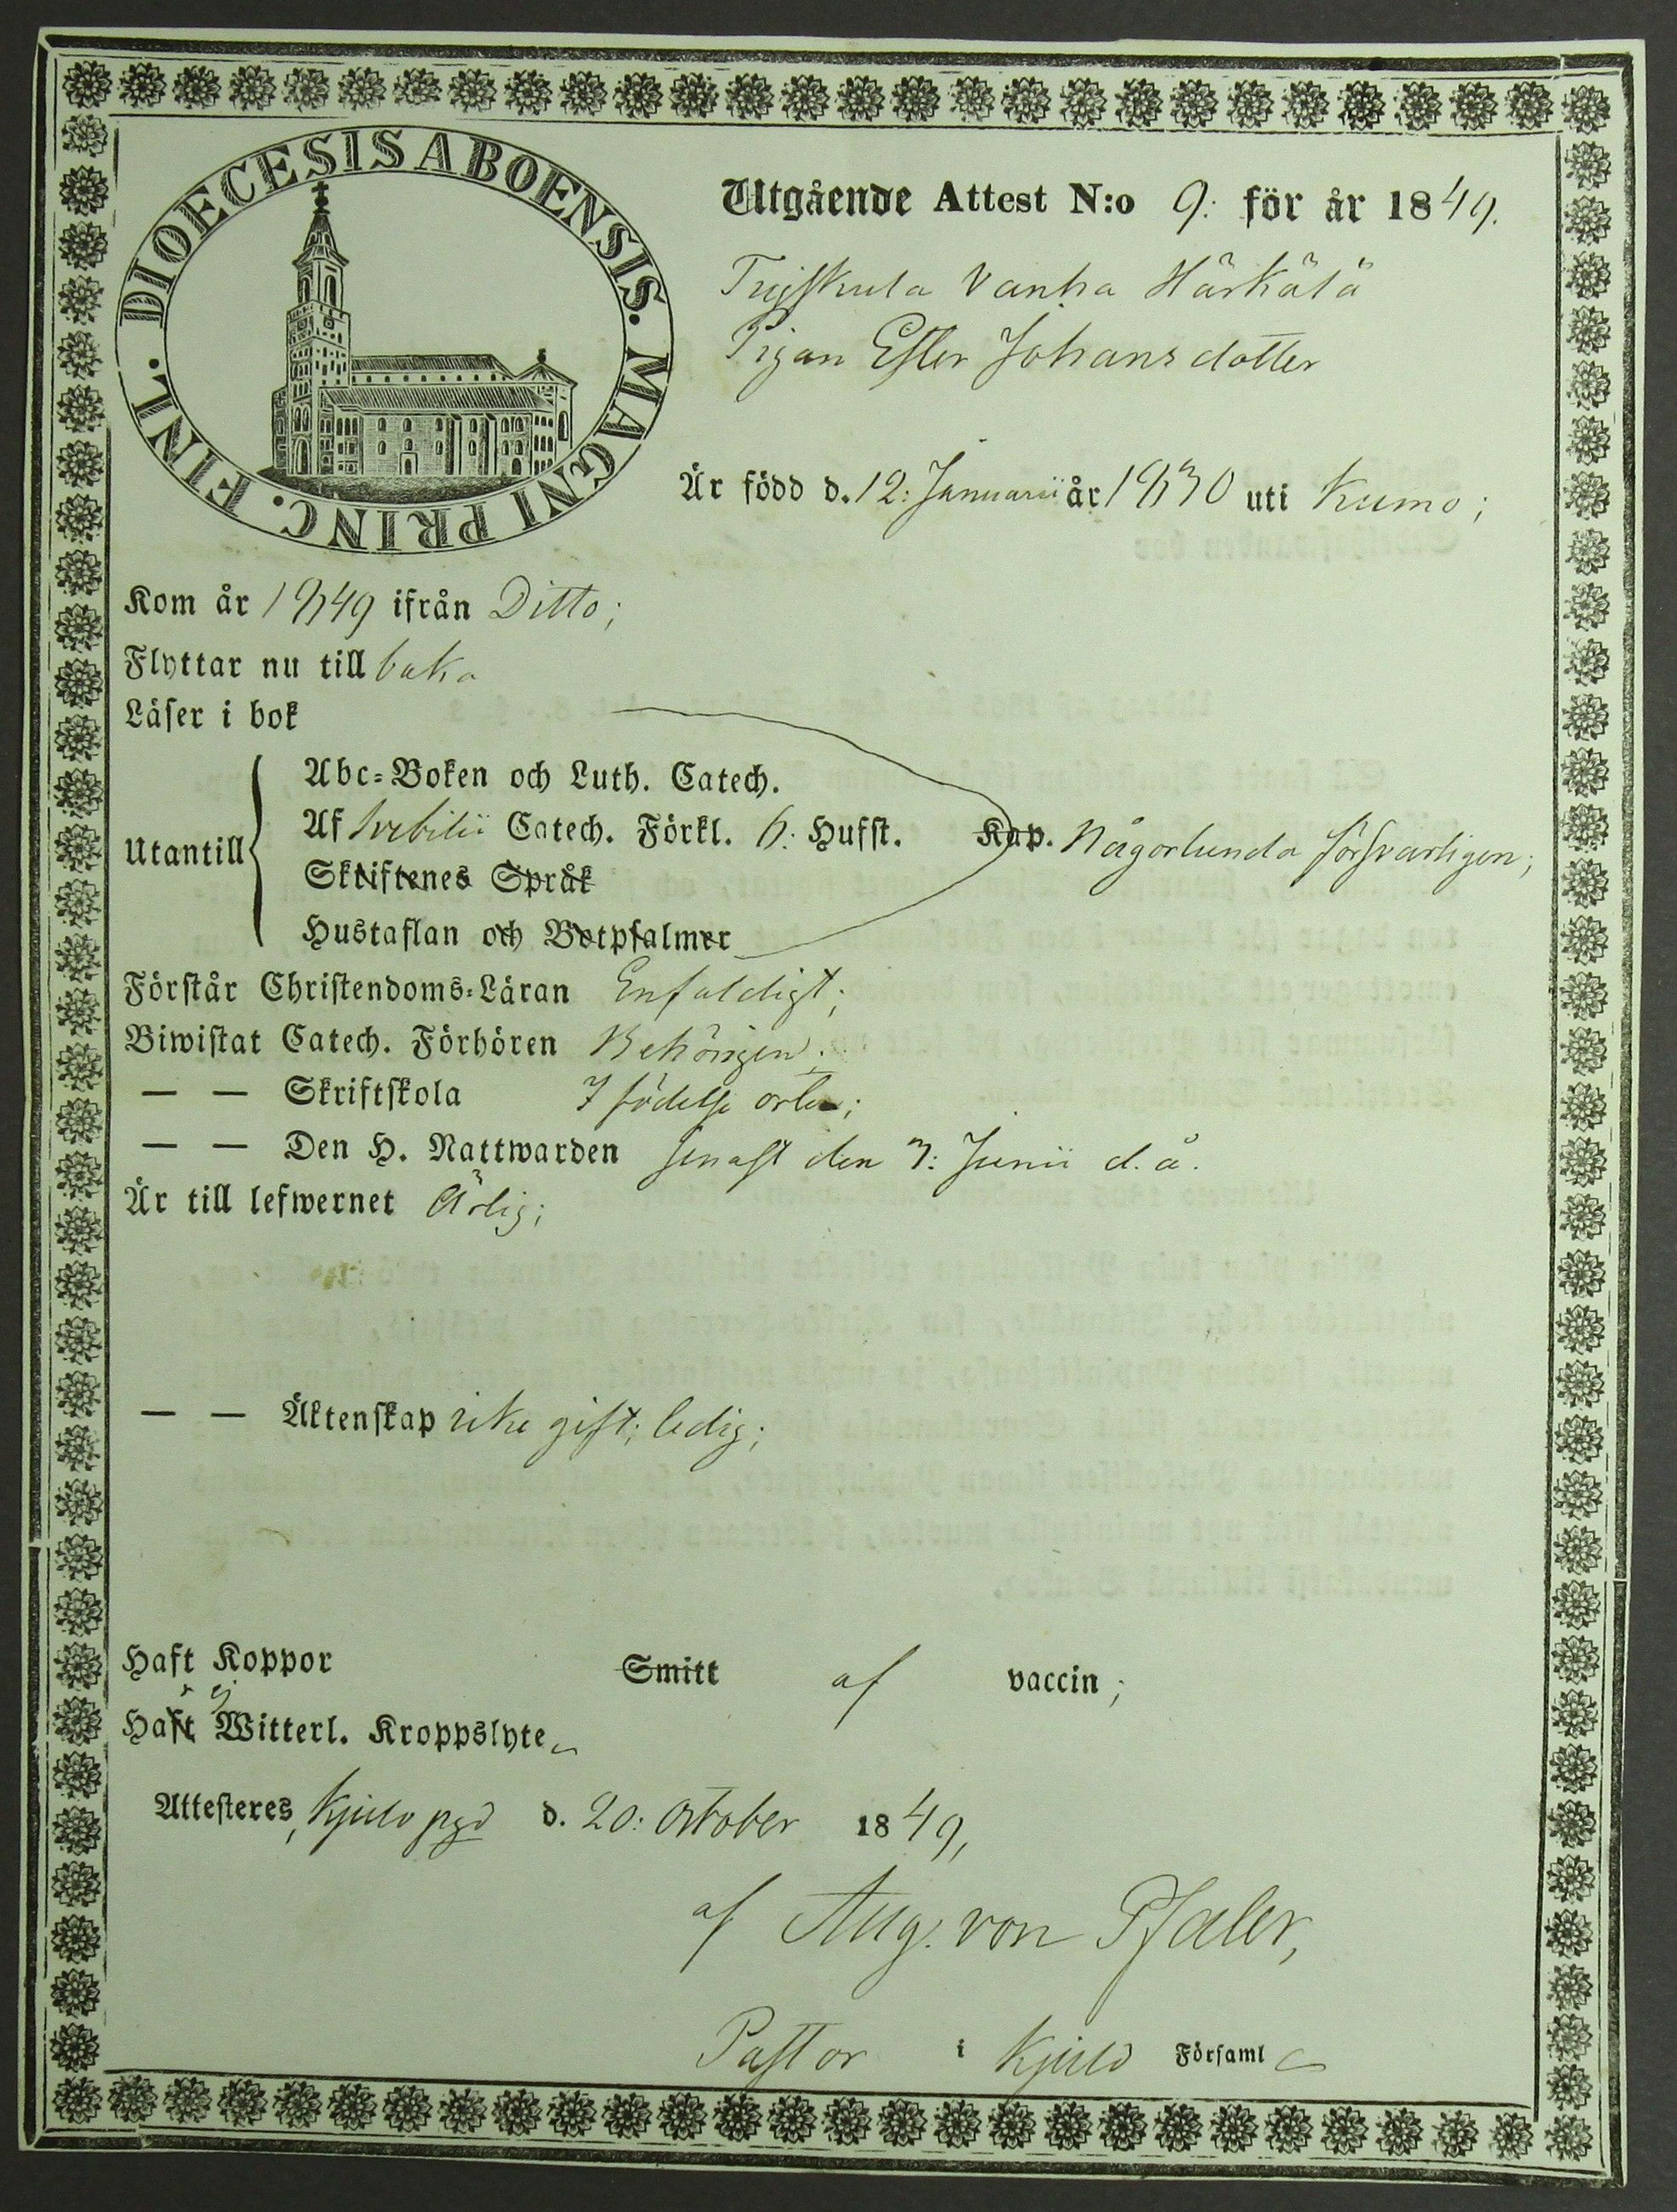 DIOECESIS ABOENSIS. MAGNI PRINC. FINL.
Utgående Attest N:o 9: för år 1849.
Vanha Härkälä
Pigan Ester Johansdotter
Är född d. 12: Januarii år 1830 uti Kumo;
Kom år 1849 ifrån Ditto;
Flyttar nu till baka
Läser i bok
Abc-Boken och Luth. Catech.
Utantill Af Svebilii Catech. Förkl. 6: Hufst. Kap. Någorlunda försvarligen;
Skriftenes Språk
Hustaflan och Botpsalmer
Förstår Christendoms-Läran Enfaldigt;
Biwistat Catech. Förhören Behörigen;
— — Skriftskola I födelse orten;
— — Den H. Nattwarden senast den 3: Junii d. å.
Är till lefwernet Ärlig;
— — Äktenskap icke gift; ledig;
Haft Koppor Smitt af vaccin;
Har ej Witterl. Kroppslyte
Attesteres, Kjulo pgd d. 20: October 1849,
af Aug. von Pfaler,
Pastor i Kjulo Församl